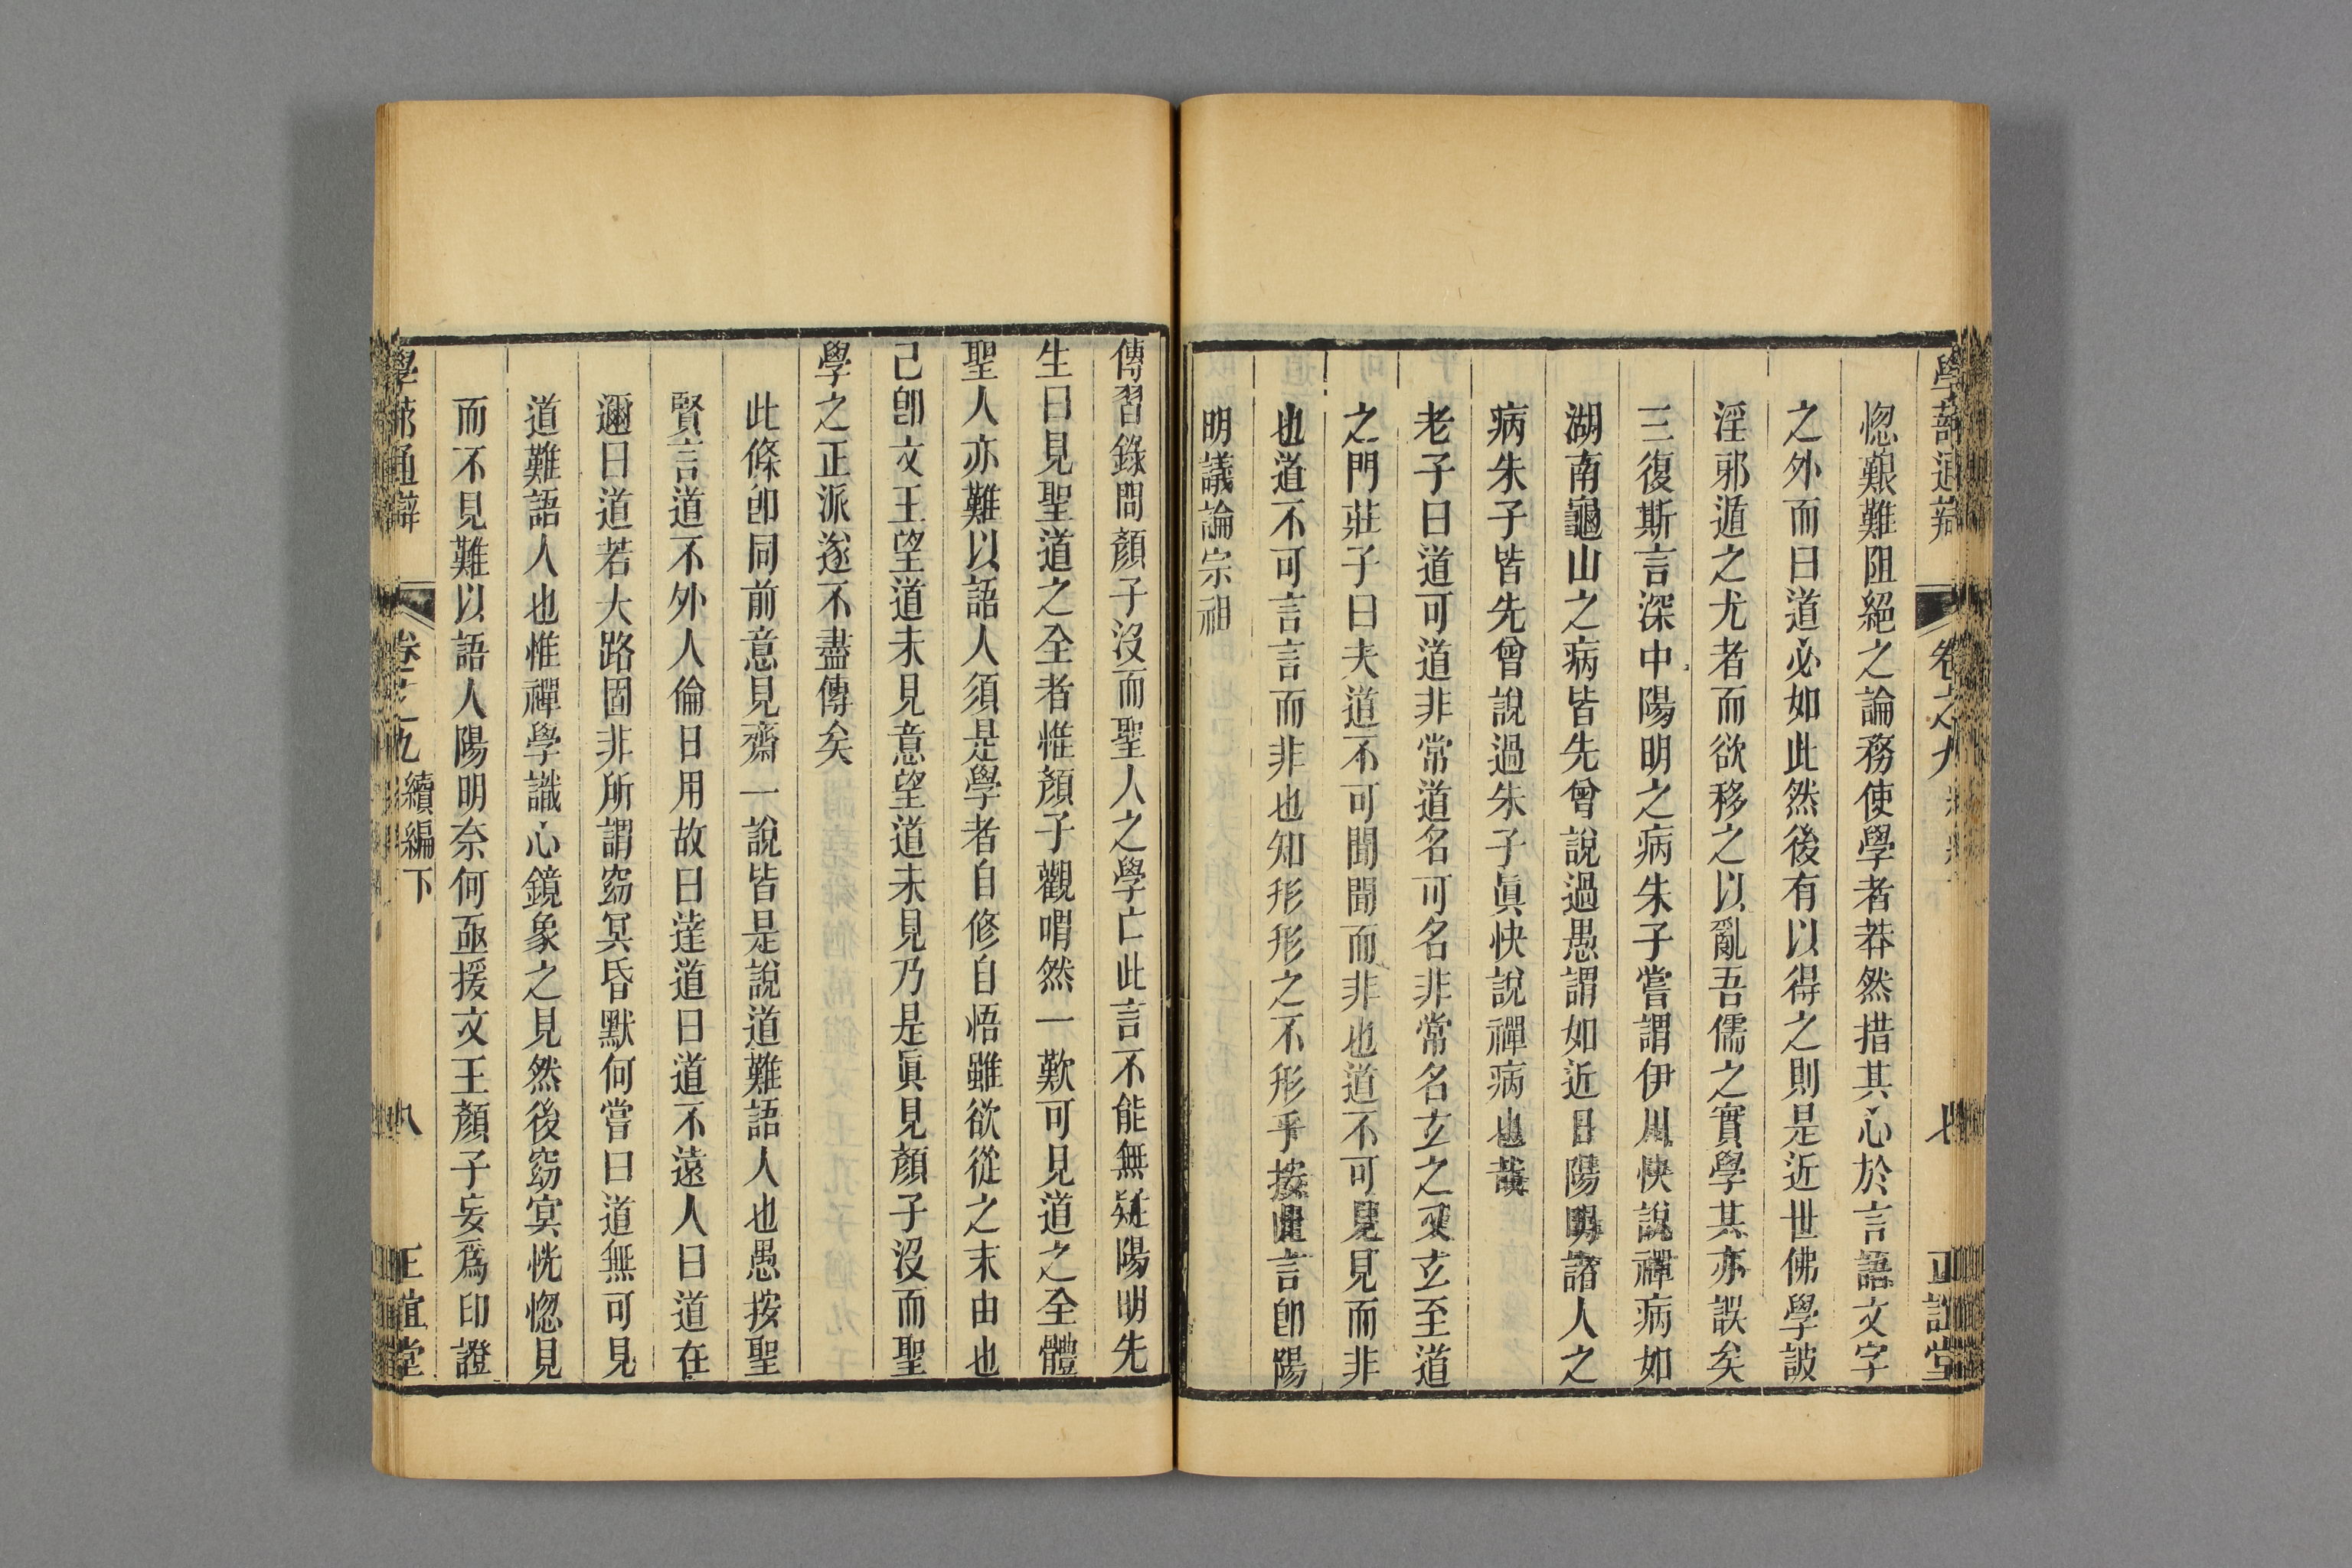 學蔀通辨 卷之九 七 正誼堂
惚艱難阻絕之論務使學者莽然措其心於言語文字
之外而曰道必如此然後有以得之則是近世佛學詖
淫邪遁之尤者而欲移之以亂吾儒之實學其亦誤矣
三復斯言深中陽明之病朱子嘗謂伊川快說禪病如
湖南龜山之病皆先曾說過愚謂如近日陽明諸人之
病朱子皆先曾說過朱子眞快說禪病也哉
老子曰道可道非常道名可名非常名玄之又玄至道
之門莊子曰夫道不可聞聞而非也道不可見見而非
也道不可言言而非也知形形之不形乎按此言卽陽
明議論宗祖
傳習錄問顏子沒而聖人之學亡此言不能無疑陽明先
生曰見聖道之全者惟顏子觀喟然一歎可見道之全體
聖人亦難以語人須是學者自修自悟雖欲從之末由也
己卽文王望道未見意望道未見乃是眞見顏子沒而聖
學之正派遂不盡傳矣
此條卽同前意見齋一說皆是說道難語人也愚按聖
賢言道不外人倫日用故曰達道曰道不遠人曰道在
邇曰道若大路固非所謂窈冥昏默何嘗曰道無可見
道難語人也惟禪學識心鏡象之見然後窈冥恍惚見
而不見難以語人陽明奈何亟援文王顏子妄爲印證
學蔀通辨 卷之九 續編下 八 正誼堂